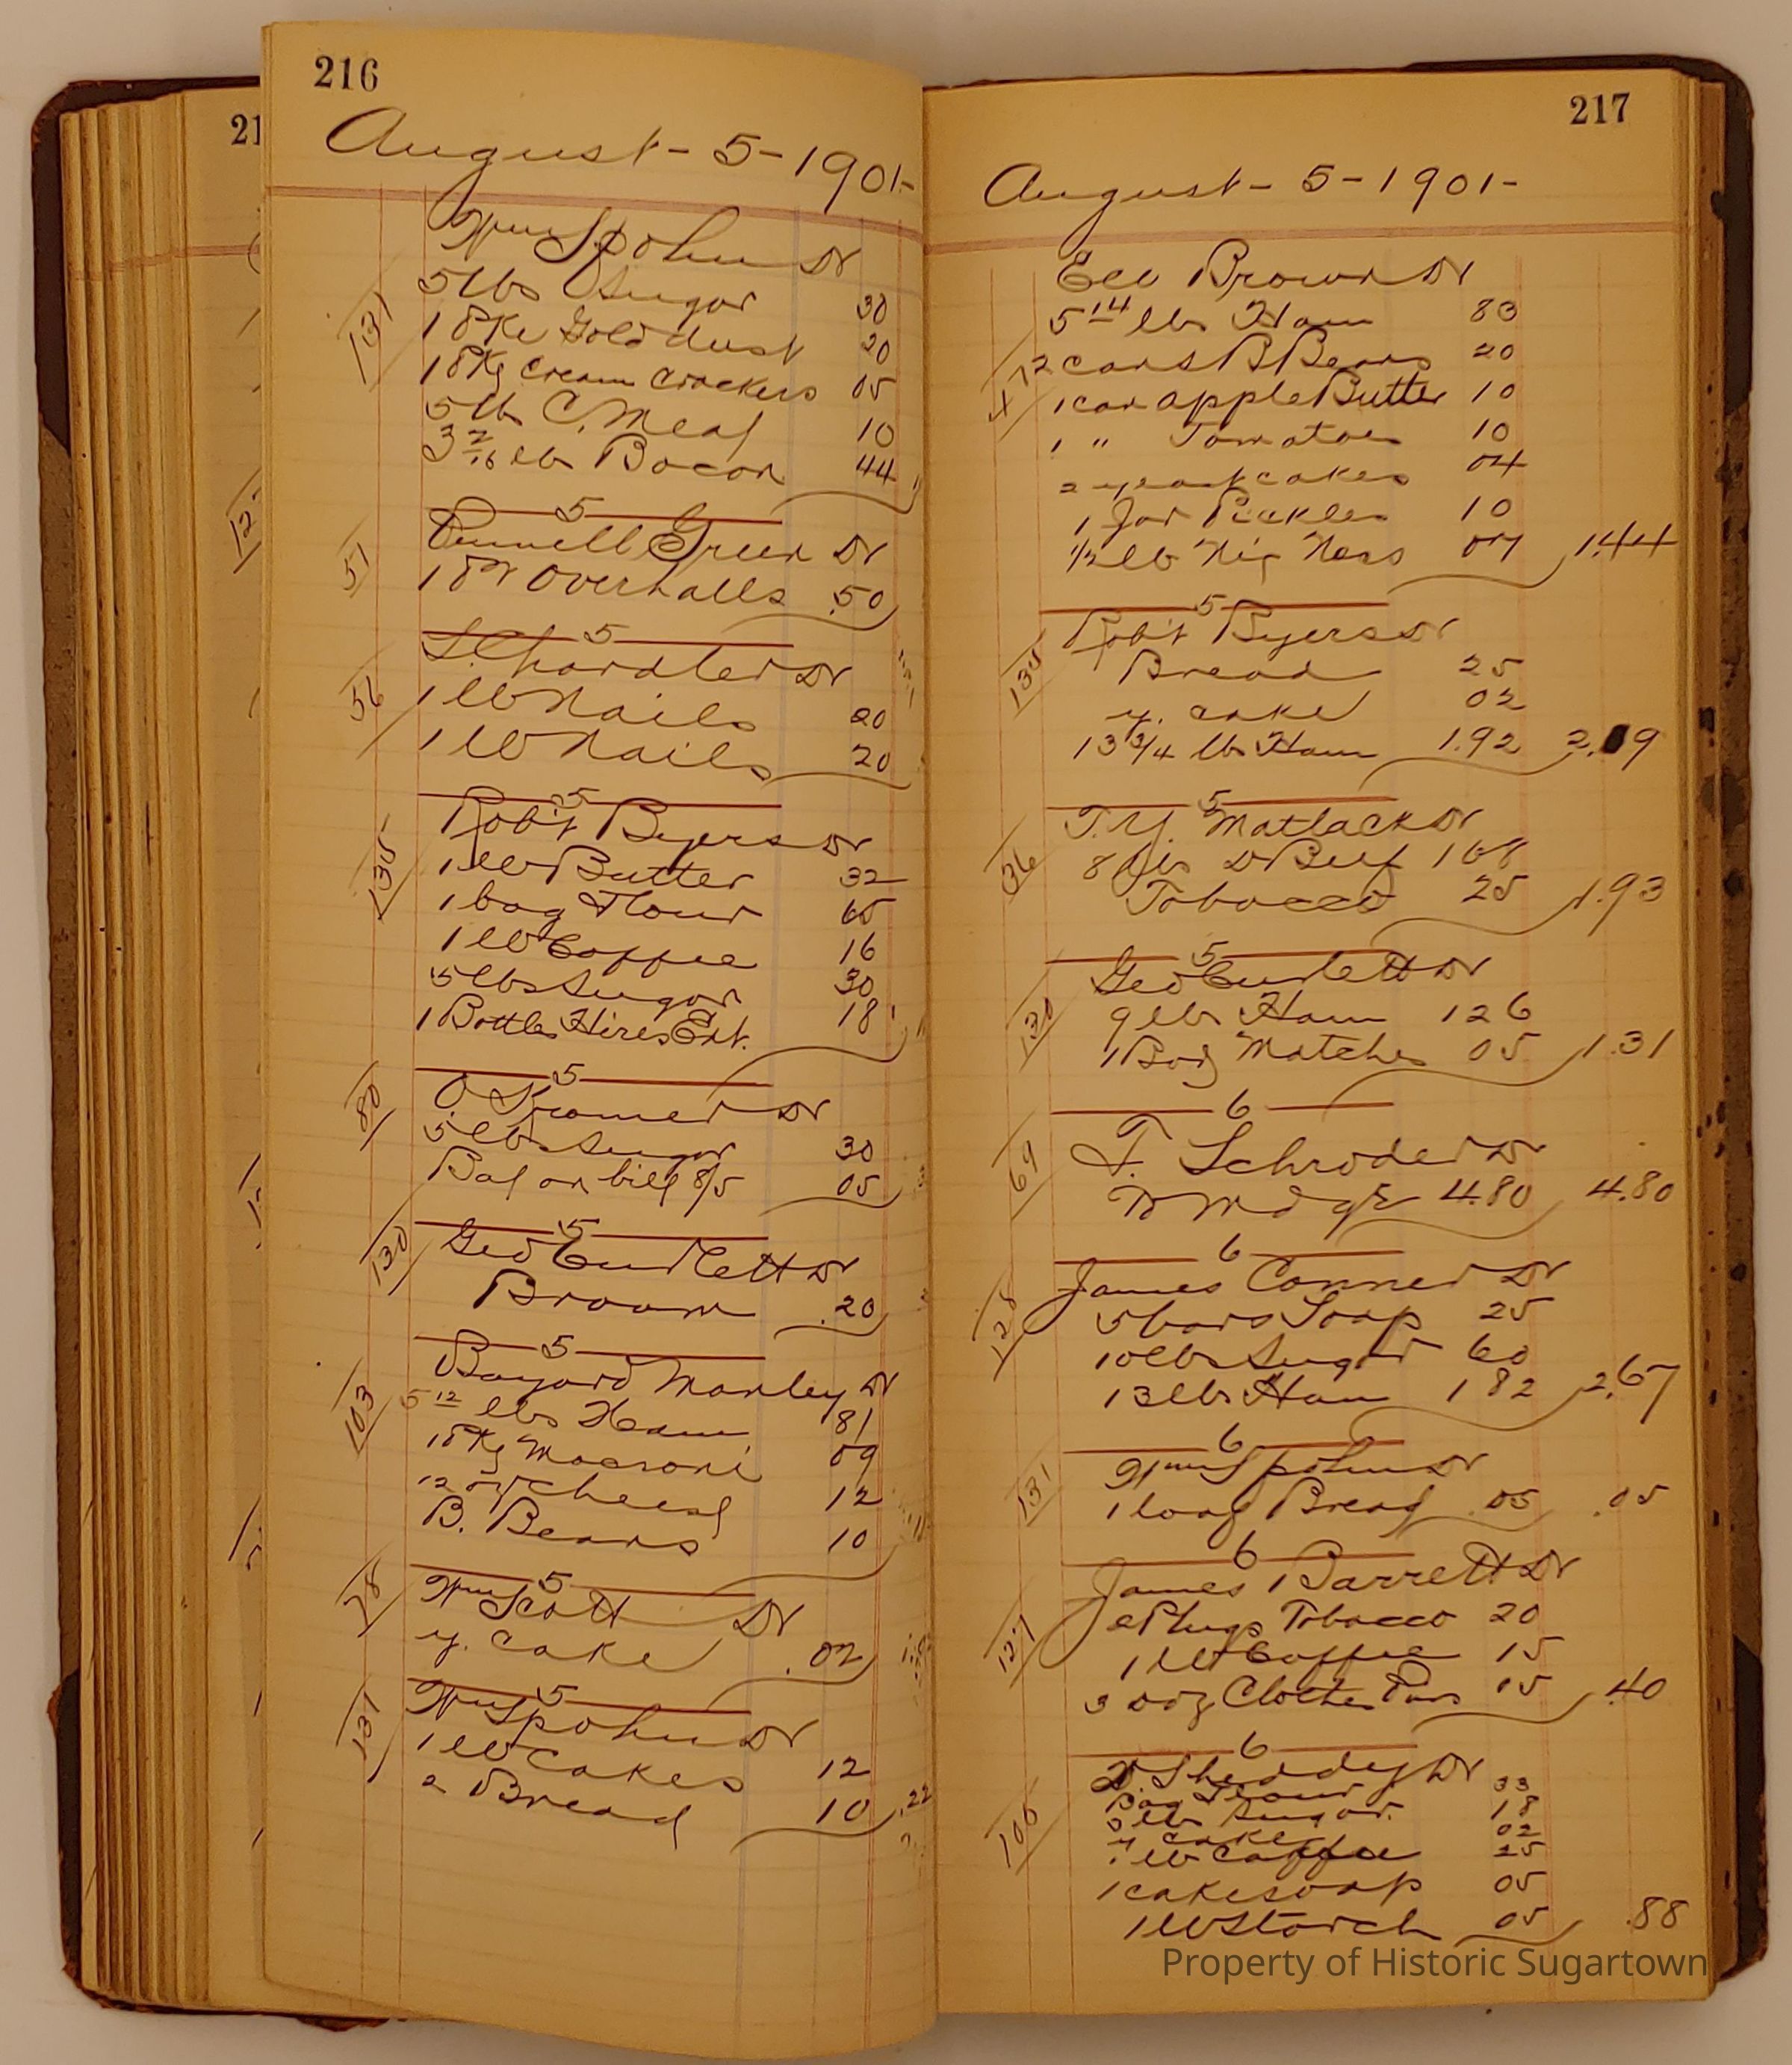 216
August - 5 - 1901 -
Wm Spohn Dr
131
5 lbs Sugar 30
1 Pkg Gold dust 20
1 Pkg Cream Crackers 05
5 lbs C. Meal 10
3 2/16 lb Bacon 44
5
Pennell Green Dr
51
1 Pr Overhalls .50
5
S. Chandler Dr
56
1 lb Nails 20
1 lb Nails 20
5
Rob't Byers Dr
135
1 lb Butter 32
1 bag Flour 65
1 lb Coffee 16
5 lbs Sugar 30
1 Bottle Hires Ext. 18
5
80
O. Kramer Dr
5 lbs Sugar 30
Bal on bill 8/5 05
5
130
Geo Curlett Dr
Broom .20
5
Bayard Manley Dr
103
5 12 lbs Ham 81
1 Pkg Macroni 09
12 oz cheese 12
B. Beans 10
5
78
Wm Scott Dr
y. cake .02
5
131
Wm Spohn Dr
1 lb Cakes 12
2 Bread 10 .22
21
12
217
August - 5 - 1901 -
Brown Dr
5 14 lbs Ham 83
47
2 cans B Beans 20
1 can apple Butter 10
1 " Tomatoes 10
2 yeast cakes 04
1 Jar Pickles 10
1/2 lb Nig Nacs 07 1.44
5
Rob't Byers Dr
135
Bread 25
y. cake 02
13 3/4 lbs Ham 1.92 2.19
5
T. Y. Matlack Dr
36
8 lbs D Beef 168
Tobacco 25 1.93
5
Geo Curlett Dr
130
9 lbs Ham 126
1 Box Matches 05 1.31
6
69
F. Schroder Dr
4.80 4.80
6
James Conner Dr
128
5 bars Soap 25
10 lbs Sugar 60
13 lbs Ham 182 2.67
6
131
Wm Spohn Dr
1 loaf Bread .05 .05
6
James Barrett Dr
127
2 Plugs Tobacco 20
1 lb Coffee 15
3 Doz Clothes Pins 05 .40
6
Sheddy Dr
106
Bag Flour 33
3 lbs Sugar 18
y cake 02
1 lb Coffee 25
1 cake soap 05
1 lb Starch 05 .88
Property of Historic Sugartown